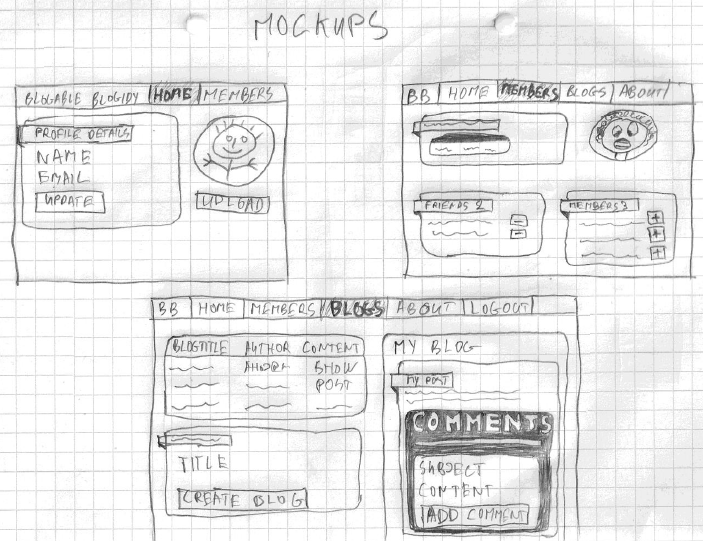 MOCKUPS
BLOGABLE BLOGIDY HOME MEMBERS
PROFILE DETAILS
NAME
EMAIL
UPDATE
UPLOAD
BB HOME MEMBERS BLOGS ABOUT
FRIENDS 2
-
-
MEMBERS 3
+
+
+
BB HOME MEMBERS BLOGS ABOUT LOGOUT
BLOGTITLE AUTHOR CONTENT
SHOW
POST
TITLE
CREATE BLOG
MY BLOG
MY POST
COMMENTS
SUBJECT
CONTENT
ADD COMMENT